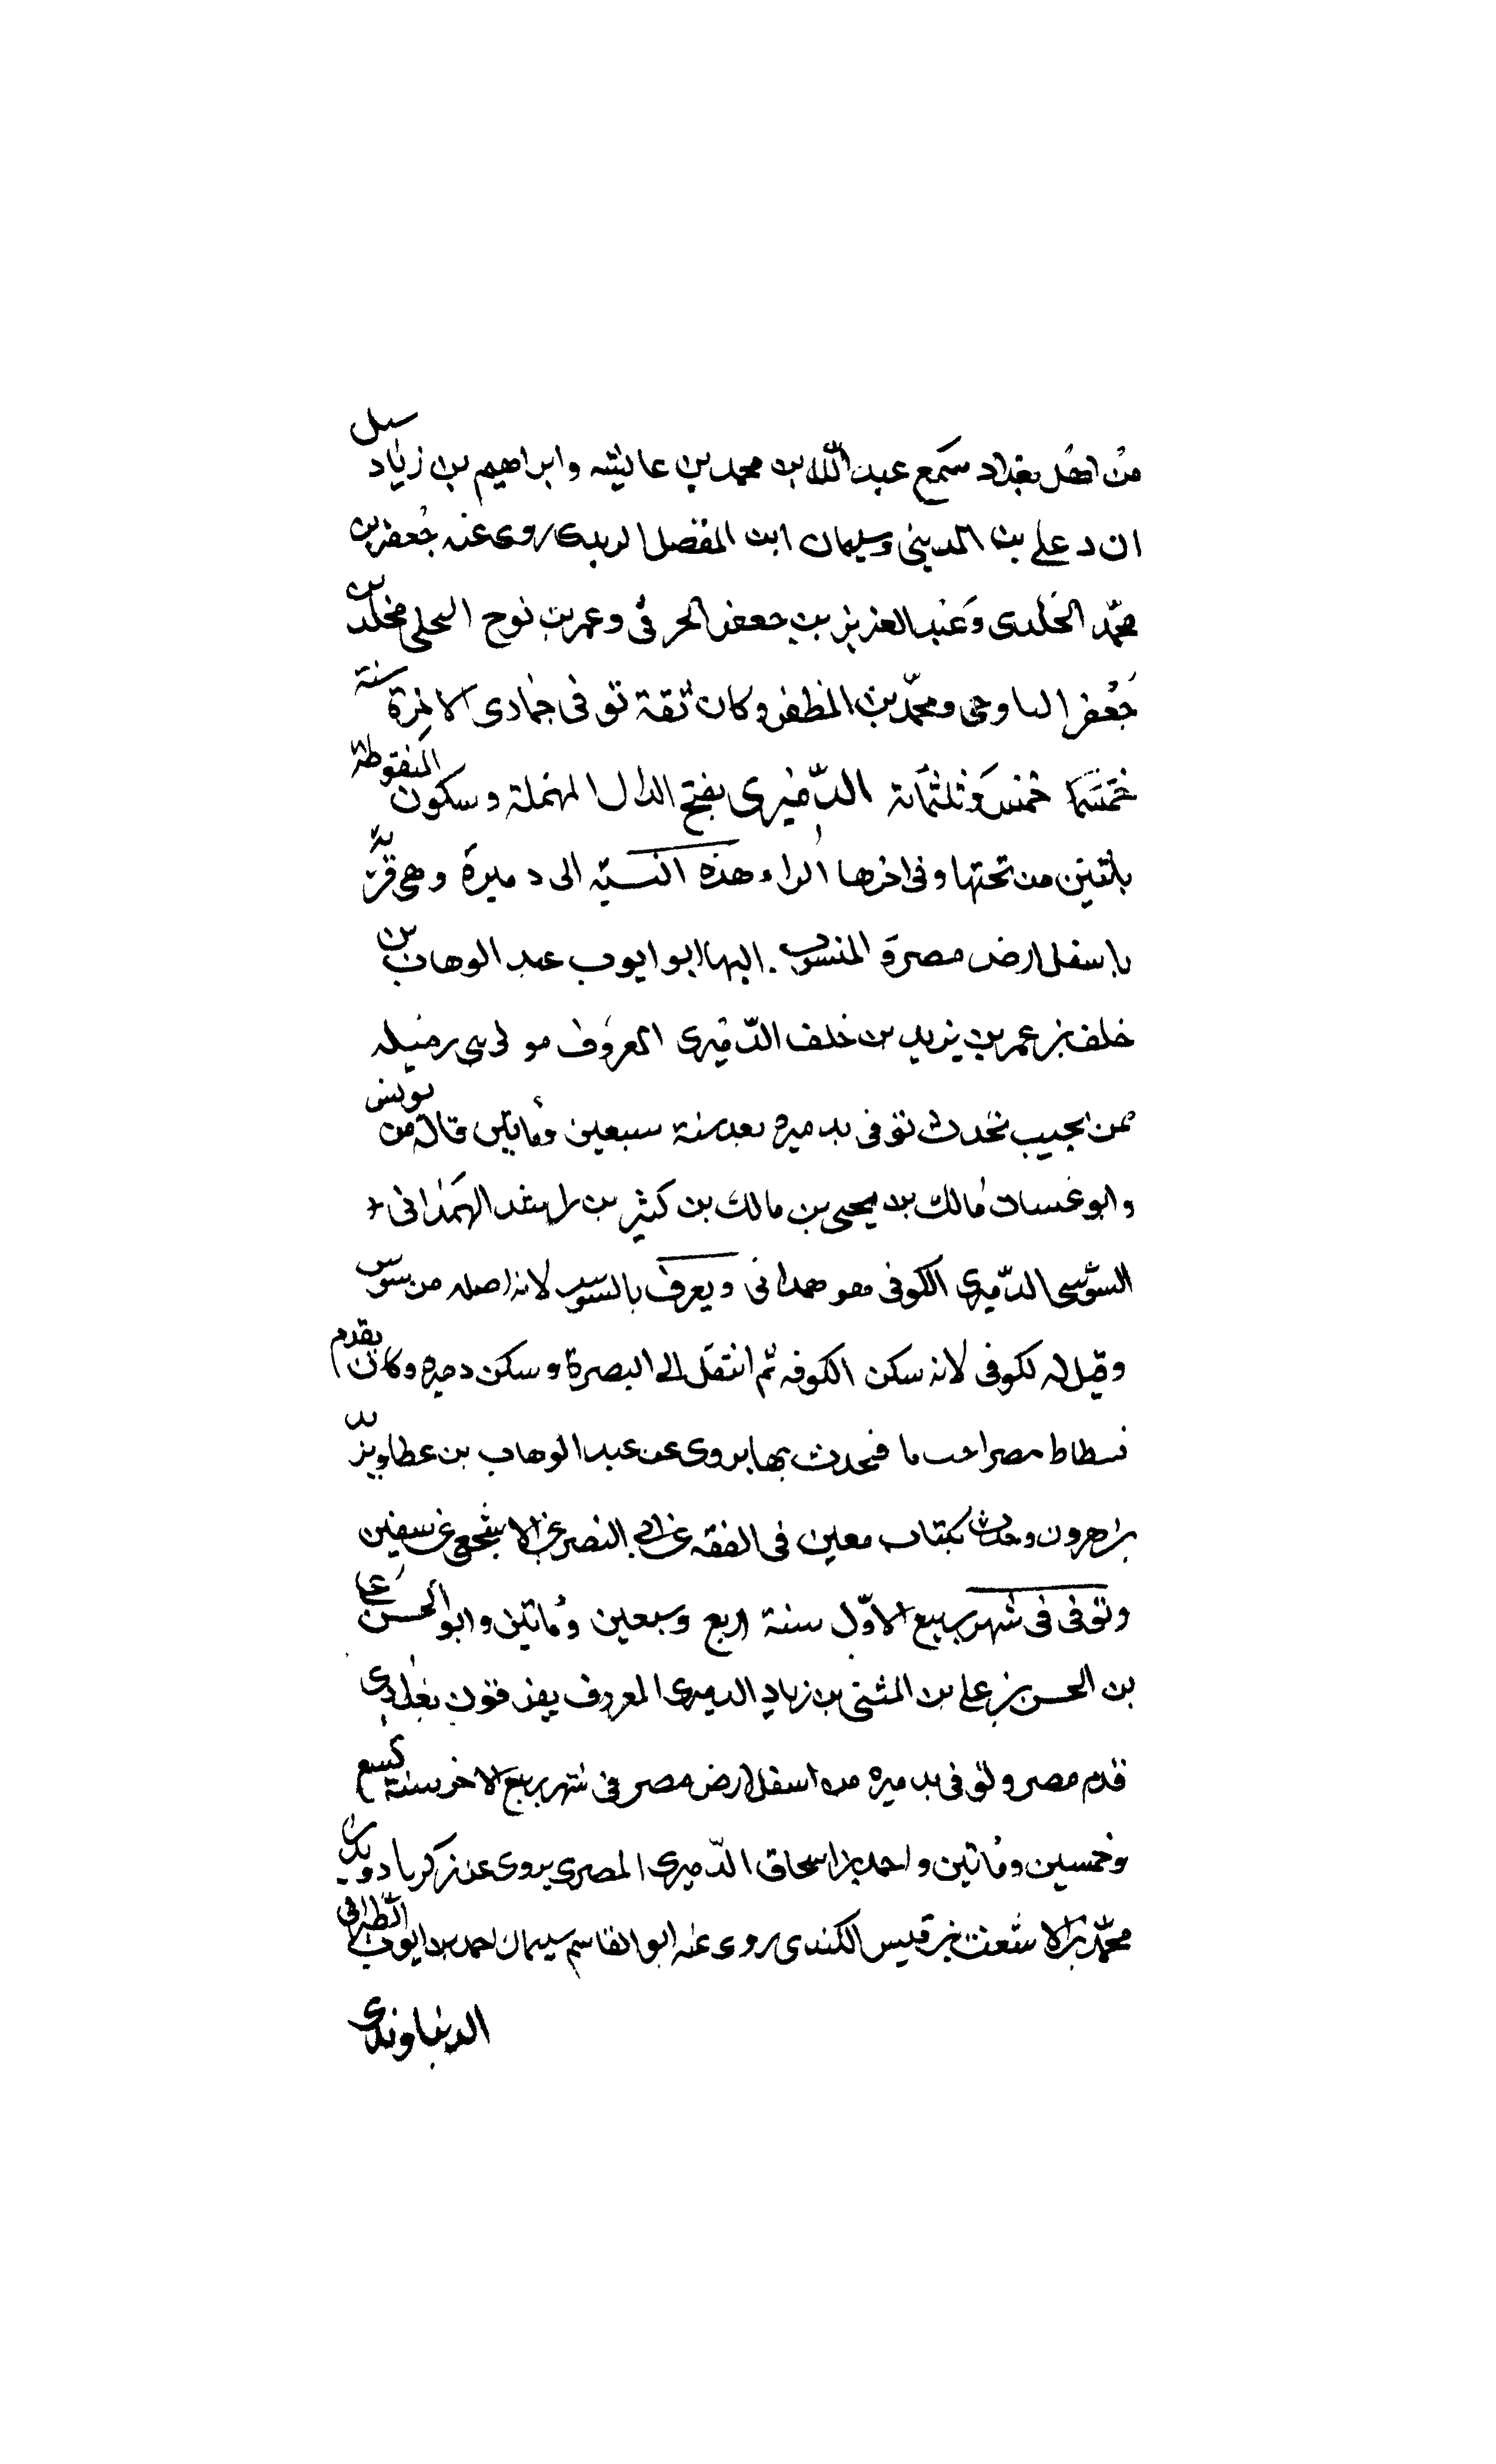 من اهل بغداد سمع عبد الله بن محمد بن عايشه وابراهيم بن زياد سبل
ان د علي بن المديني وسليمان ابن المفضل الزيدي روى عنه جعفر بن
محمد الخلدى وعبد العزيز بن جعفر الحرقى وعمر بن نوح البجلى مخلد بن
جعفر الباوحى ومحمد بن المظفر وكان ثقة توفى فى جمادى الاخرة سنة
خمس وثلثمائة الدميرى بفتح الدال المهملة وسكون المنقوطة
باثنين من تحتها وفى اخرها الراء هذه النسبة الى دميرة وهى قرية
باسفل ارض مصرة المنسوب اليها ابو ايوب عبد الوهاب بن
خلف بن عمر بن يزيد بن خلف الدميرى المعروف مولى بى رميله
ممن نجيب نحدث توفى بدميره بعد سنة سبعين ومايتين قاله من يونس
وابو غسان مالك بن يحيى بن مالك بن كثير بن راشد الهمذانى
السوسى الدميرى الكوفى وهو همدانى ويعرف بالسوس لانه اصله من سوس
وقيل له لكوفى لانه سكن الكوفه ثم انتقل الى البصرة وسكن دميره وكان يقدم
فسطاط مصر احيانا فيحدث بها يروى عن عبد الوهاب بن عطا ويزيد
بن هرون وحدث بكتاب معين فى الفقه عن ابى النصر عن الاشجعى عن سفين
وتوفى فى شهر ربيع الاول سنة اربع وسبعين ومائتين وابو الحسن على
بن الحسن بن على بن المثنى بن زياد الدميرى المعروف بفرقون بغدادى
قدم مصر وتوفى بدميره مده اسفل ارض مصر فى شهر ربيع الاخر سنة تسع
وخمسين ومائتين واحمد بن اسحاق الدميرى المصرى يروى عن زكريا دويد بن
محمد بن الاشعث بن قيس الكندى روى عنه ابو القاسم سليمان احمد بن ايوب الطبرانى
الدنباوندى